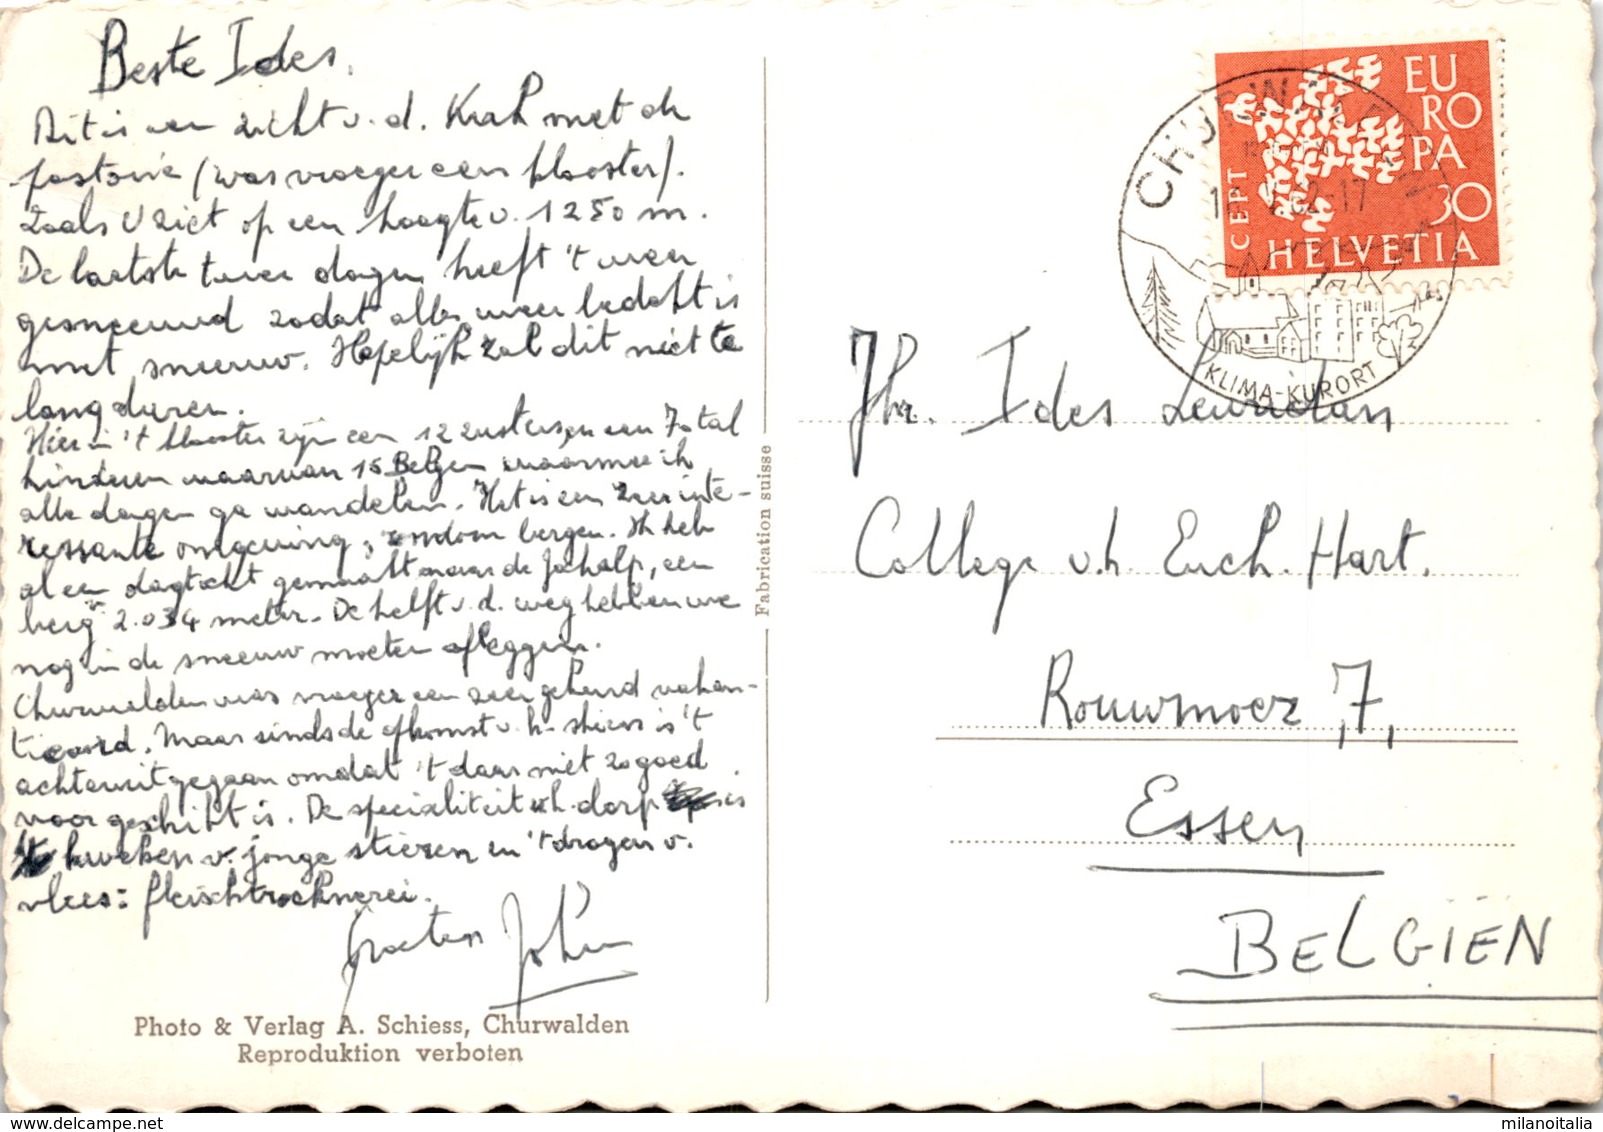 Beste Ides,
Dit is een zicht v. d. Kerk met de
pastorie (was vroeger een klooster).
Zoals U ziet op een hoogte v. 1250 m.
De laatste twee dagen heeft 't weer
gesneeuwd zodat alles weer bedekt is
met sneeuw. Hopelijk zal dit niet te
lang duren.
Hier in 't klooster zijn een 12 zusters en een 70tal
kinderen waarvan 15 Belgen waarmee ik
alle dagen ga wandelen. Het is een zeer inte-
ressante omgeving, rondom bergen. Ik heb
al een dagtocht gemaakt naar de Jochalp, een
berg v 2.034 meter. De helft v. d. weg hebben we
nog in de sneeuw moeten afleggen.
Churwalden was vroeger een zeer gekend vakan-
tieoord. Maar sinds de opkomst v. h. skiën is 't
achteruitgegaan omdat 't daar niet zo goed
voor geschikt is. De specialiteit v.h. dorp is
kweken v. jonge stieren en 't drogen v.
vlees: fleischtrocknerei.
Groeten John
Photo & Verlag A. Schiess, Churwalden
Reproduktion verboten
Fabrication suisse
CHURWALDEN
62-17
KLIMA-KURORT
EU
RO
PA
30
CEPT
HELVETIA
Jhr. Ides
College v.h. Euch. Hart.
Rouwmoer, 7,
Essen
BELGIËN
milanoitalia